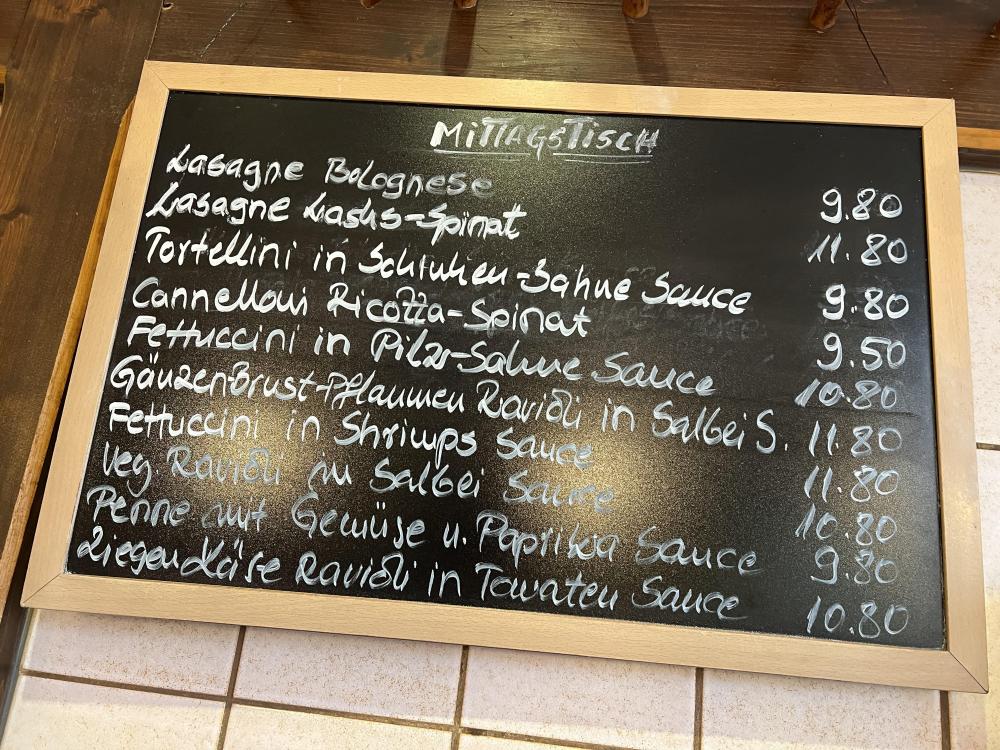 MITTAGSTISCH
Lasagne Bolognese 9.80
Lasagne Lachs-Spinat 11.80
Tortellini in Schinken-Sahne Sauce 9.80
Cannelloni Ricotta-Spinat 9.50
Fettuccini in Pilz-Sahne Sauce 10.80
Gänzen-Brust-Pflaumen Ravioli in Salbei S. 11.80
Fettuccini in Shrimps Sauce 11.80
Veg. Ravioli in Salbei Sauce 10.80
Penne mit Gemüse u. Paprika Sauce 9.80
Ziegen Käse Ravioli in Tomaten Sauce 10.80